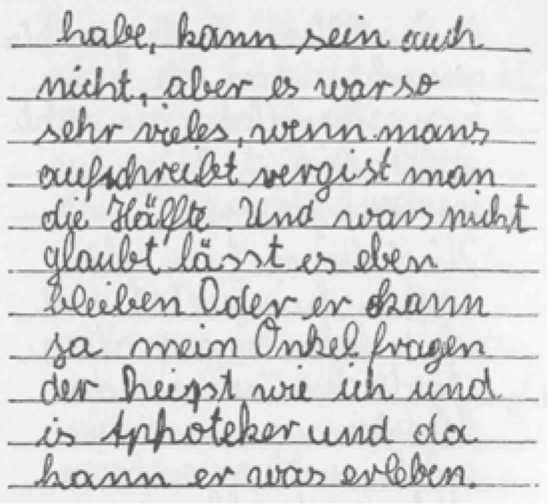 habe, kann sein auch
nicht, aber es war so
sehr vieles, wenn mans
aufschreibt vergist man
die Hälfte. Und wars nicht
glaubt lässt es eben
bleiben Oder er kann
ja mein Onkel fragen
der heist wie ich und
is Aphoteker und da
kann er was erleben.